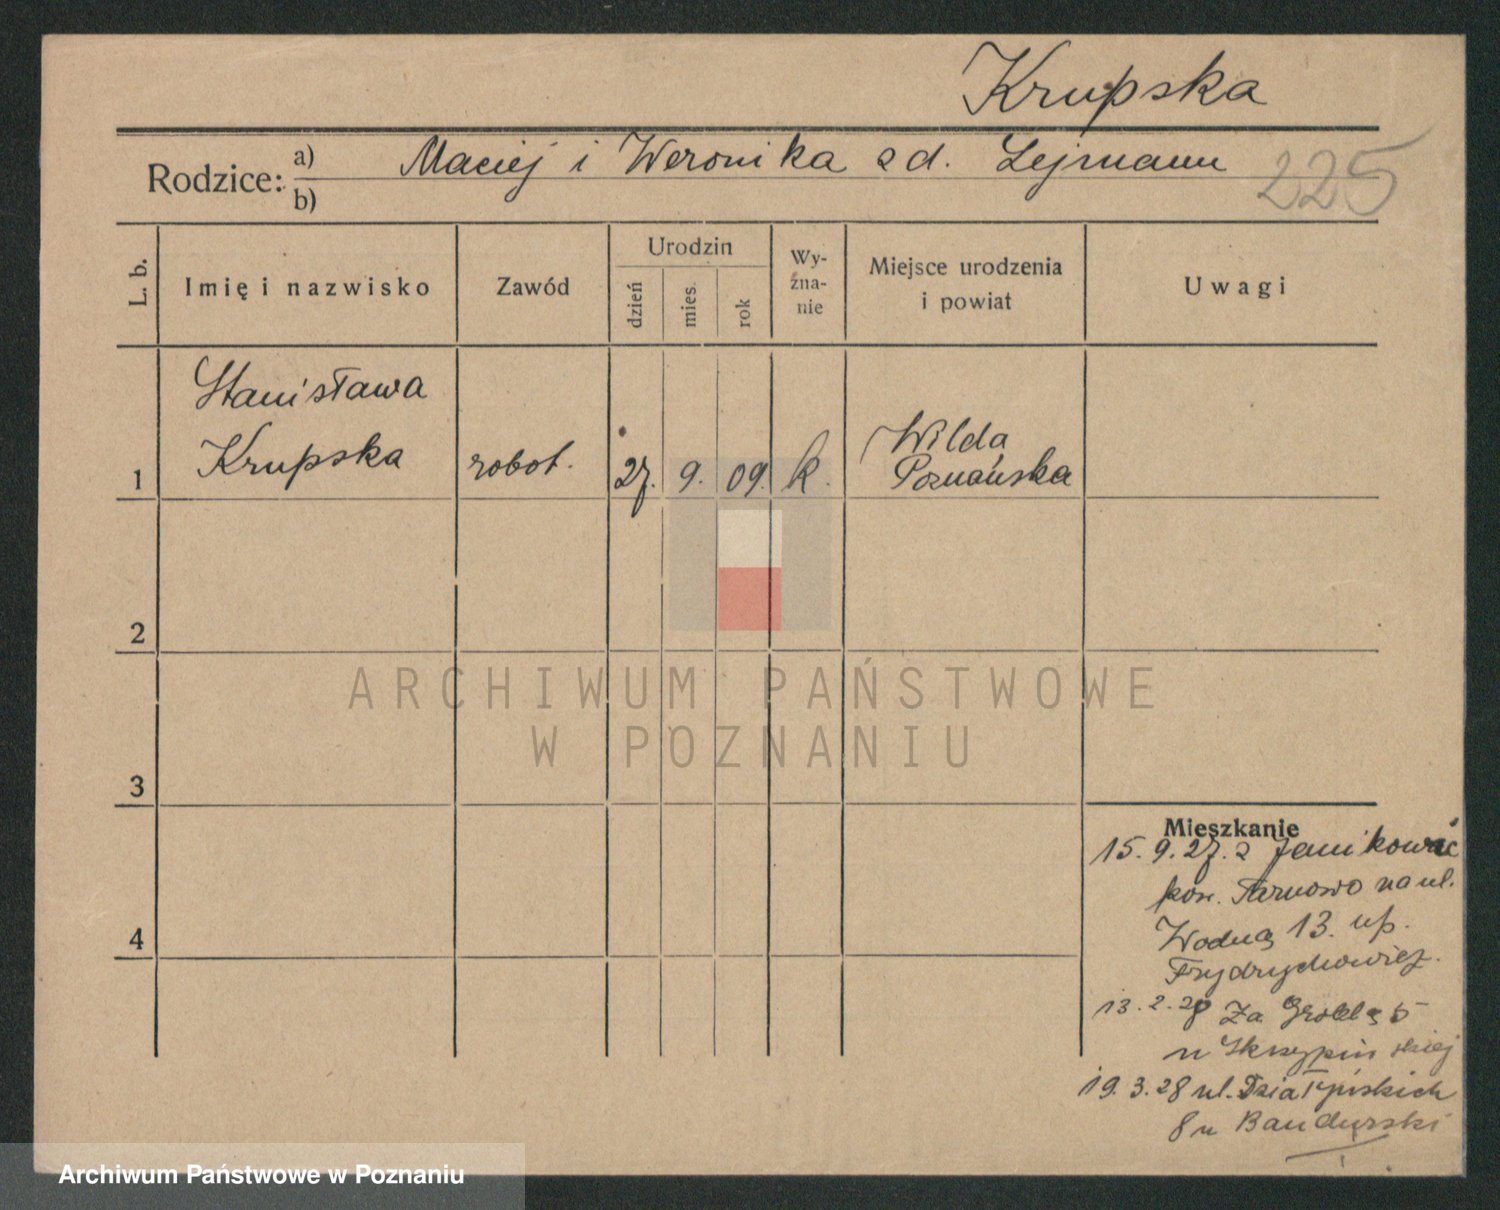 Krupska
Rodzice: a) Maciej i Weronika zd. Lejmann
b)
225
L. b.
Imię i nazwisko
Zawód
Urodzin
dzień
mies.
rok
Wy-
zna-
nie
Miejsce urodzenia
i powiat
Uwagi
Stanisława
1 Krupska robot. 27. 9. 09. k. Wilda
Poznańska
2
3
4
ARCHIWUM PAŃSTWOWE
W POZNANIU
Mieszkanie
15. 9. 27. z Janikowic
pow. Tarnowo na ul.
Wodną 13. up.
Frydrychowicz.
13. 2. 28 Za Groblą 5
u Skrzypińskiej
19. 3. 28 ul. Działyńskich
8 u Bandurski
Archiwum Państwowe w Poznaniu